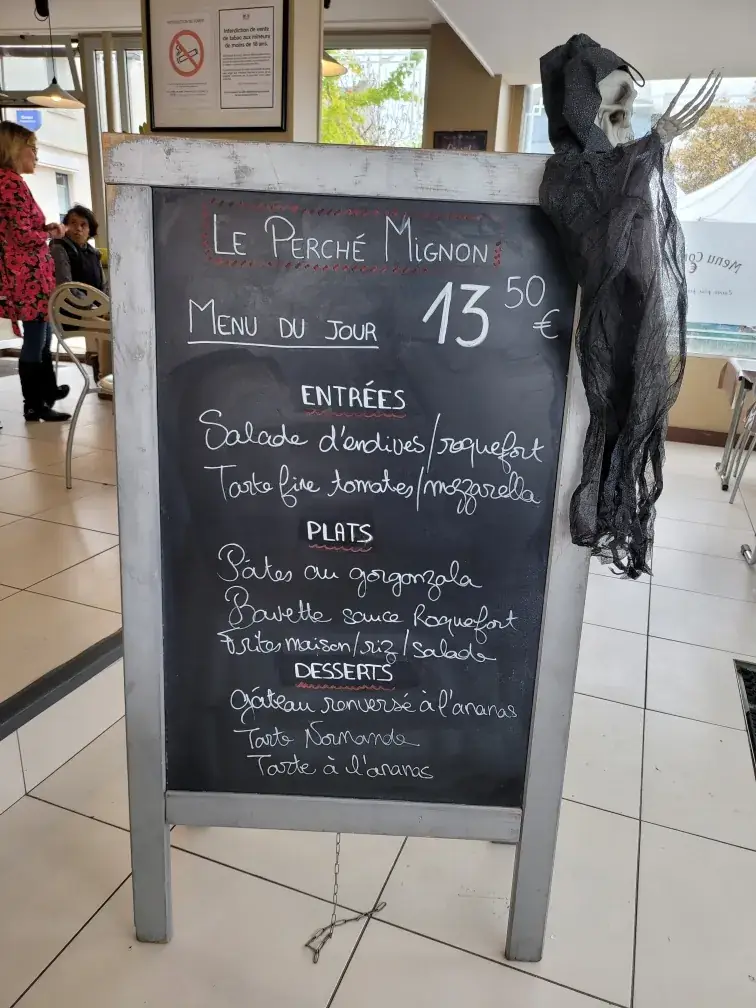 Interdiction de vente
de tabac aux mineurs
de moins de 18 ans.
LE PERCHÉ MIGNON
MENU DU JOUR 13 50 €
ENTRÉES
Salade d'endives/roquefort
Tarte fine tomates/mozzarella
PLATS
Pâtes au gorgonzola
Bavette sauce Roquefort
Frites maison/riz/salade
DESSERTS
Gâteau renversé à l'ananas
Tarte Normande
Tarte à l'ananas
Menu